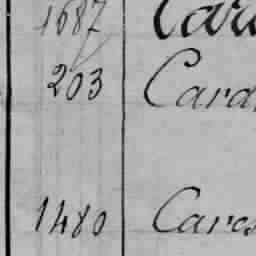 1687 Car
203 Card
1480 Cares